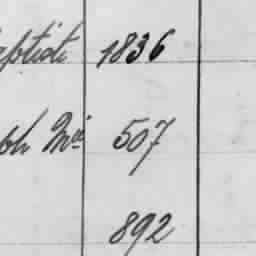 aptiste 1836
ph Mie 507
892